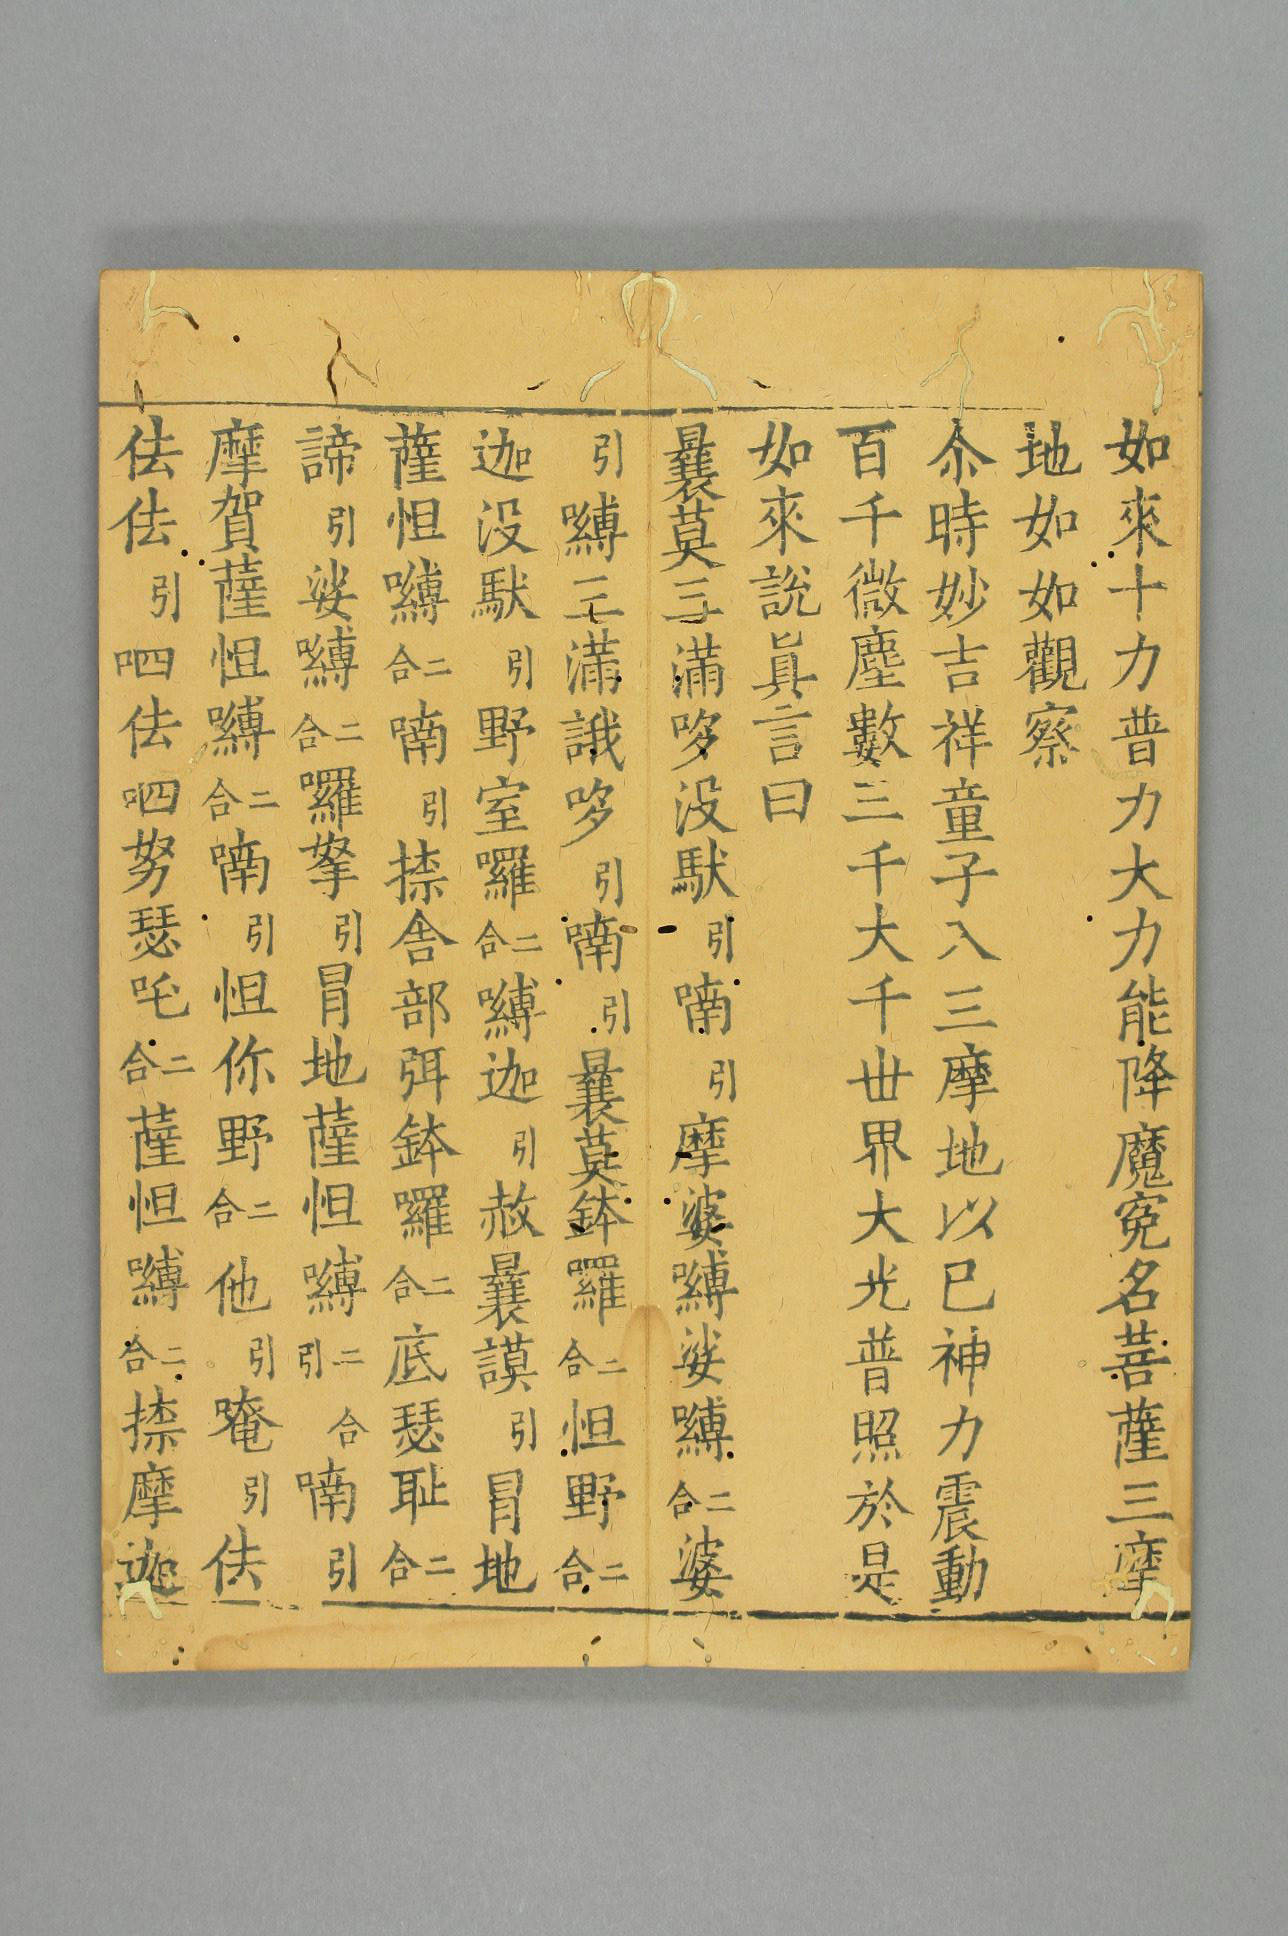 如來十力普力大力能降魔寃名菩薩三摩
地如如觀察
尒時妙吉祥童子入三摩地以已神力震動
百千微塵數三千大千世界大光普照於是
如來說眞言曰
曩莫三滿哆没馱引喃引摩婆嚩娑嚩二合婆
引嚩三滿誐哆引喃引曩莫鉢囉二合怛野二合
迦没馱引野室囉二合嚩迦引赦曩謨引冐地
薩怛嚩二合喃引捺舍部弭鉢囉二合底瑟耻二合
諦引娑嚩二合囉拏引冐地薩怛嚩二引合喃引
摩賀薩怛嚩二合喃引怛你野二合他引唵引佉
佉佉引呬佉呬努瑟吒二合薩怛嚩二合捺摩迦